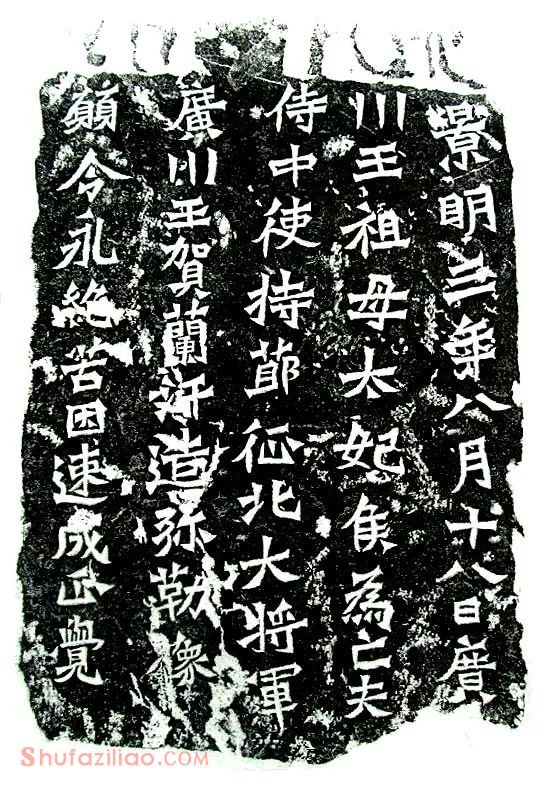 景明三年八月十八日廣
川王祖母太妃侯為亡夫
侍中使持莭征北大将軍
廣川王賀蘭汗造弥勒像
願令永絶苦因速成正覺
Shufaziliao.com